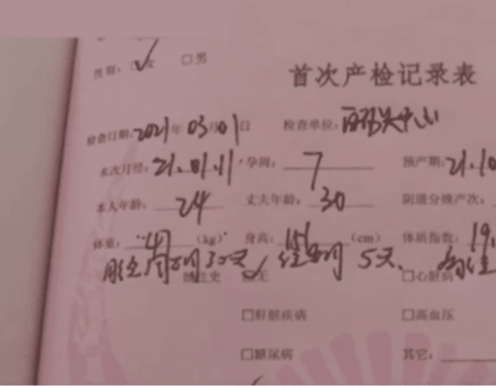 性别: ☑女 □男
首次产检记录表
检查日期: 2021年03月01日 检查单位:
末次月经: 21.01.11 孕周: 7 预产期: 21.10
本人年龄: 24 丈夫年龄: 30 阴道分娩产次:
体重: 41 (kg) 身高: 151 (cm) 体质指数: 19.
月经周期30天 经期 5天、
史 ☑无 □心脏病
□肝脏疾病 □高血压
□糖尿病 其它: